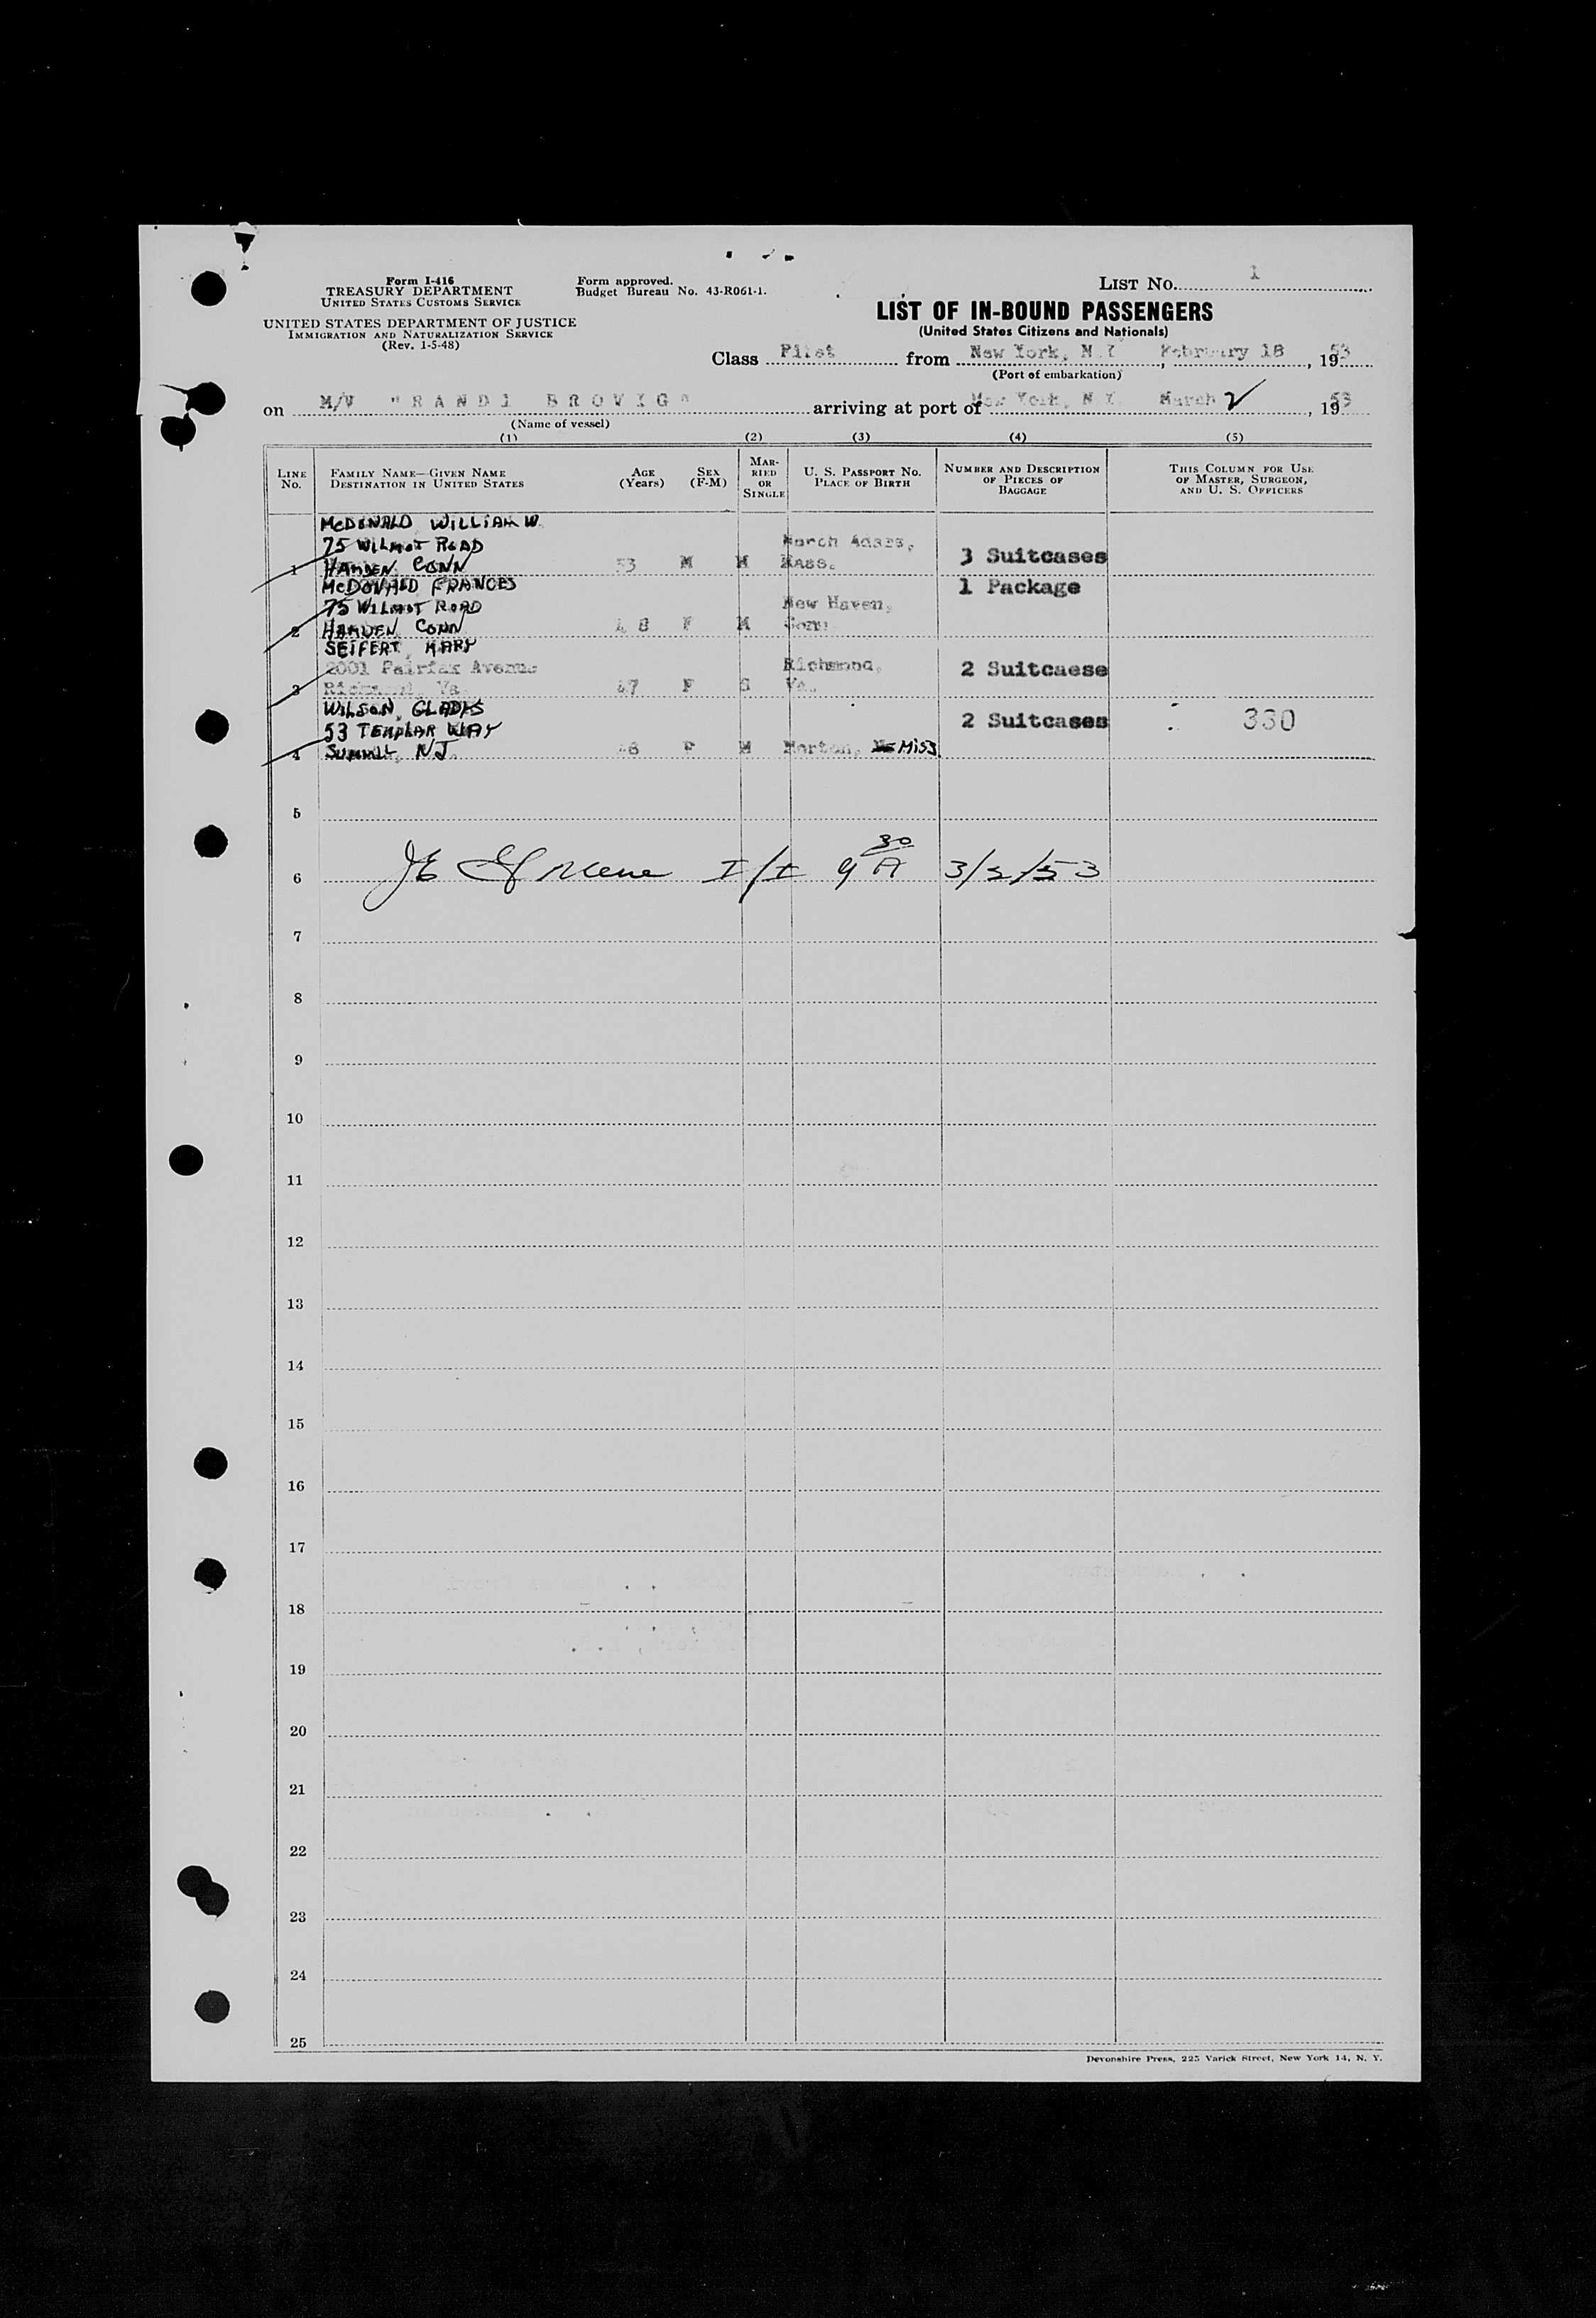 Form I-416
TREASURY DEPARTMENT
UNITED STATES CUSTOMS SERVICE
UNITED STATES DEPARTMENT OF JUSTICE
IMMIGRATION AND NATURALIZATION SERVICE
(Rev. 1-5-48)
Form approved.
Budget Bureau No. 43-R061-1.
LIST No. 1
LIST OF IN-BOUND PASSENGERS
(United States Citizens and Nationals)
Class First from New York, N.Y., February 18, 1953
(Port of embarkation)
on M/V "RANDI BROVIG" arriving at port of New York, N.Y. March 2, 1953
(Name of vessel)
(1) (2) (3) (4) (5)
LINE No. FAMILY NAME—GIVEN NAME DESTINATION IN UNITED STATES AGE (Years) SEX (F-M) MARRIED OR SINGLE U. S. PASSPORT No. PLACE OF BIRTH NUMBER AND DESCRIPTION OF PIECES OF BAGGAGE THIS COLUMN FOR USE OF MASTER, SURGEON, AND U. S. OFFICERS
McDONALD WILLIAM W.
75 WILMOT ROAD North Adams,
1 HAMDEN, CONN 53 M M Mass. 3 Suitcases
McDONALD FRANCES 1 Package
75 WILMOT ROAD New Haven,
2 HAMDEN, CONN 48 F M Conn.
SEIFERT, MARY
2001 Fairfax Avenue Richmond, 2 Suitcaese
3 Richmond, Va. 47 F S Va.
WILSON, GLADYS
53 TEMPLAR WAY 2 Suitcases 330
4 Summit, NJ. F M Morton, Miss.
5
6 JE Greene I/I 9 30 A 3/2/53
7
8
9
10
11
12
13
14
15
16
17
18
19
20
21
22
23
24
25
Devonshire Press, 225 Varick Street, New York 14, N. Y.